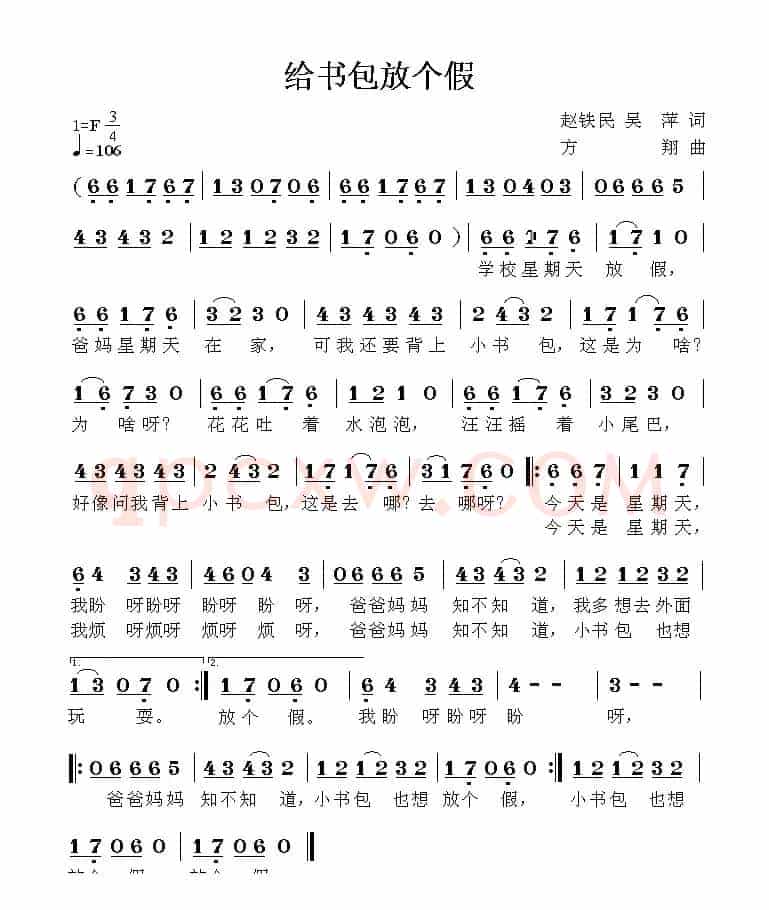 给书包放个假
1=F 3/4
赵铁民 吴 萍 词
♩=106
方 翔 曲
(6 6 1 7 6 7 | 1 3 0 7 0 6 | 6 6 1 7 6 7 | 1 3 0 4 0 3 | 0 6 6 6 5 |
4 3 4 3 2 | 1 2 1 2 3 2 | 1 7 0 6 0 ) | 6 6 2 7 6 | 1 7 1 0 |
学校星期天 放 假,
6 6 1 7 6 | 3 2 3 0 | 4 3 4 3 4 3 | 2 4 3 2 | 1 7 1 7 6 |
爸妈星期天 在 家, 可我还要背上 小书 包, 这是为 啥?
1 6 7 3 0 | 6 6 1 7 1 | 2 1 2 1 0 | 2 2 4 3 1 | 3 2 3 0 |
为 啥呀? 花花吐 着 水泡泡, 汪汪摇 着 小尾巴,
4 3 4 3 4 3 | 2 4 3 2 | 1 7 1 7 6 | 3 1 7 6 0 |: 6 6 7 | 1 1 7 |
好像问我背上 小书 包, 这是去 哪? 去 哪呀? 今天是 星期天,
今天是 星期天,
6 4 3 4 3 | 4 6 0 4 3 | 0 6 6 6 5 | 4 3 4 3 2 | 1 2 1 2 3 2 |
我盼 呀盼呀 盼呀 盼 呀, 爸爸妈妈 知不知 道, 我多想去外面
我烦 呀烦呀 烦呀 烦 呀, 爸爸妈妈 知不知 道, 小书包 也想
1. 2.
1 3 0 7 0 :| 1 7 0 6 0 | 6 4 3 4 3 | 4 - - | 3 - - |
玩 耍。 放个 假。 我盼 呀盼呀 盼 呀,
|: 0 6 6 6 5 | 4 3 4 3 2 | 1 2 1 2 3 2 | 1 7 0 6 0 :| 1 2 1 2 3 2 |
爸爸妈妈 知不知 道, 小书包 也想 放个 假, 小书包 也想
1 7 0 6 0 | 1 7 0 6 0 |
放个 假, 放个 假
qpcxw.COM